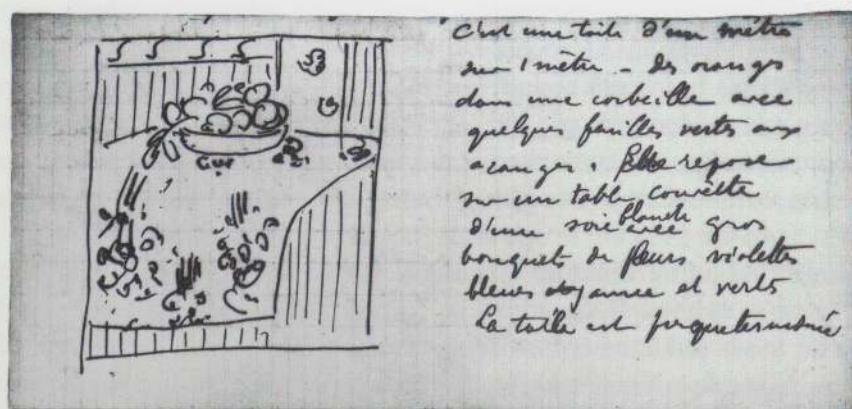 C'est une toile d'un mètre
sur 1 mètre - des oranges
dans une corbeille avec
quelques feuilles vertes aux
oranges. Elle repose
sur un table couverte
d'une soie blanche avec gros
bouquets de fleurs violettes
bleues jaunes et verts
La toile est presque terminée